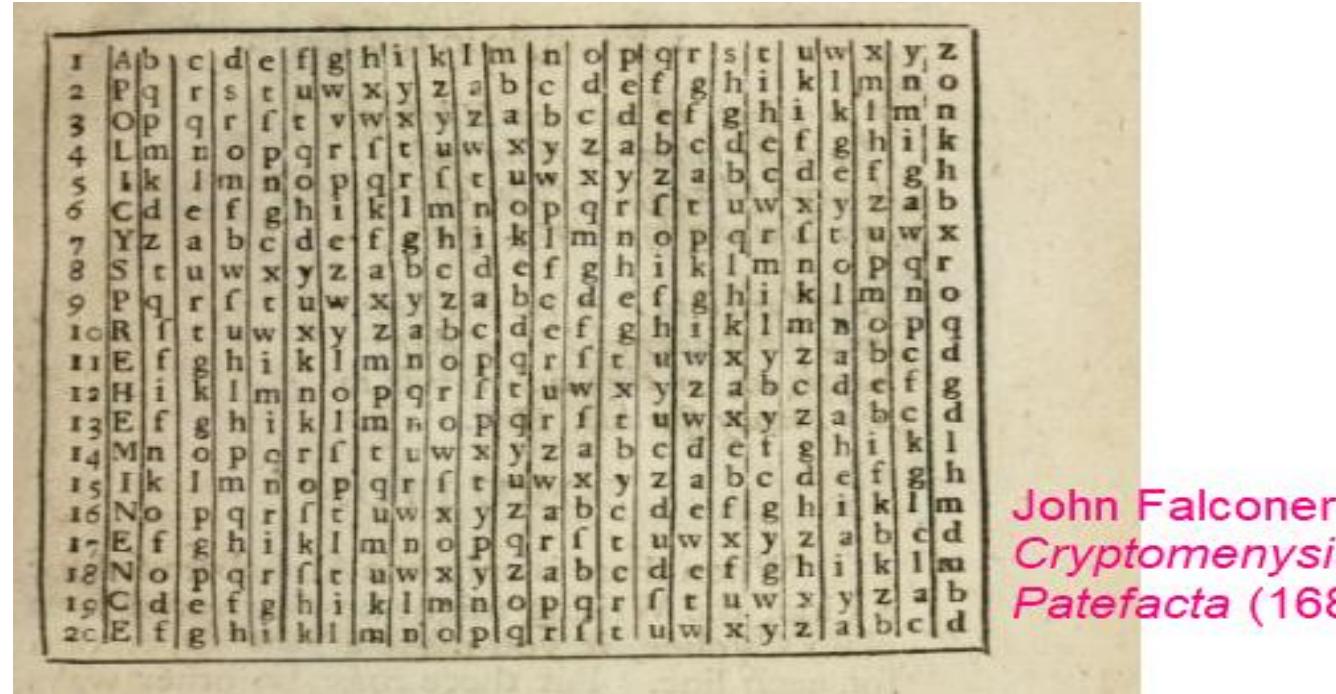 1 A b c d e f g h i k l m n o p q r s t u w x y z
2 P q r s t u w x y z a b c d e f g h i k l m n o
3 O p q r ſ t v w x y z a b c d e f g h i k l m n
4 L m n o p q r ſ t u w x y z a b c d e f g h i k
5 I k l m n o p q r ſ t u w x y z a b c d e f g h
6 C d e f g h i k l m n o p q r ſ t u w x y z a b
7 Y z a b c d e f g h i k l m n o p q r ſ t u w x
8 S t u w x y z a b c d e f g h i k l m n o p q r
9 P q r ſ t u w x y z a b c d e f g h i k l m n o
10 R ſ t u w x y z a b c d e f g h i k l m n o p q
11 E f g h i k l m n o p q r ſ t u w x y z a b c d
12 H i k l m n o p q r ſ t u w x y z a b c d e f g
13 E f g h i k l m n o p q r ſ t u w x y z a b c d
14 M n o p q r ſ t u w x y z a b c d e f g h i k l
15 I k l m n o p q r ſ t u w x y z a b c d e f g h
16 N o p q r ſ t u w x y z a b c d e f g h i k l m
17 E f g h i k l m n o p q r ſ t u w x y z a b c d
18 N o p q r ſ t u w x y z a b c d e f g h i k l m
19 C d e f g h i k l m n o p q r ſ t u w x y z a b
20 E f g h i k l m n o p q r ſ t u w x y z a b c d
John Falconer
Cryptomenysi
Patefacta (168